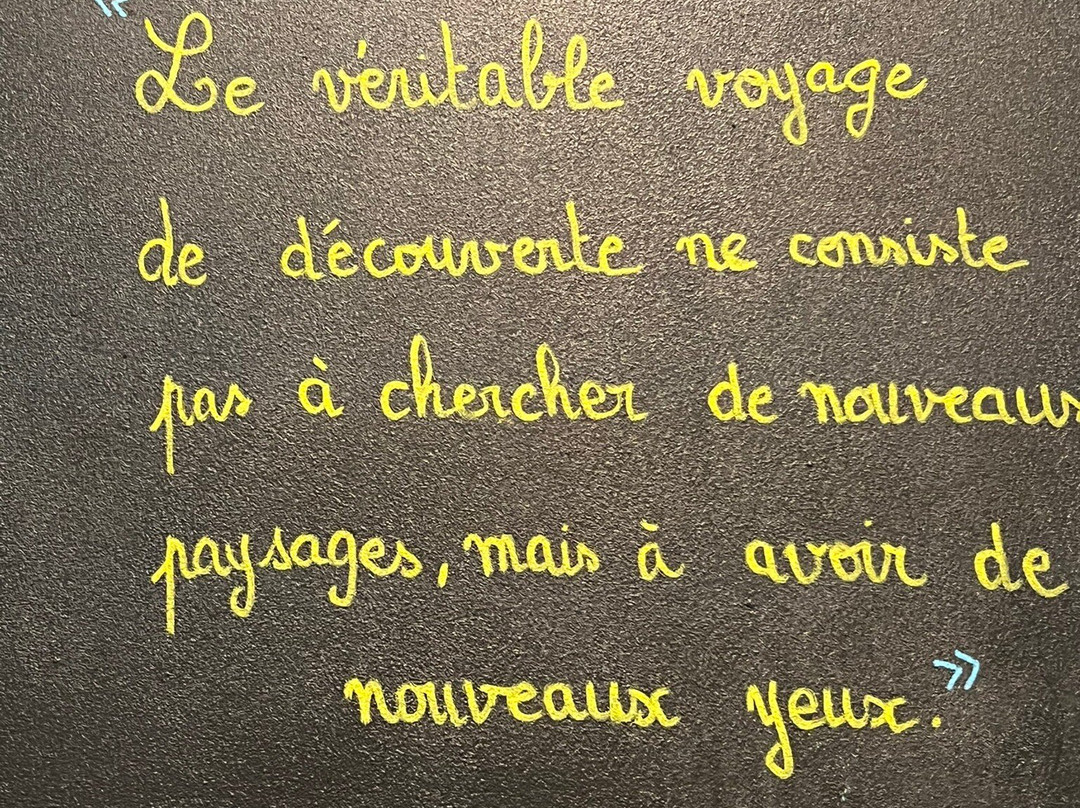 « Le véritable voyage
de découverte ne consiste
pas à chercher de nouveaux
paysages, mais à avoir de
nouveaux yeux. »